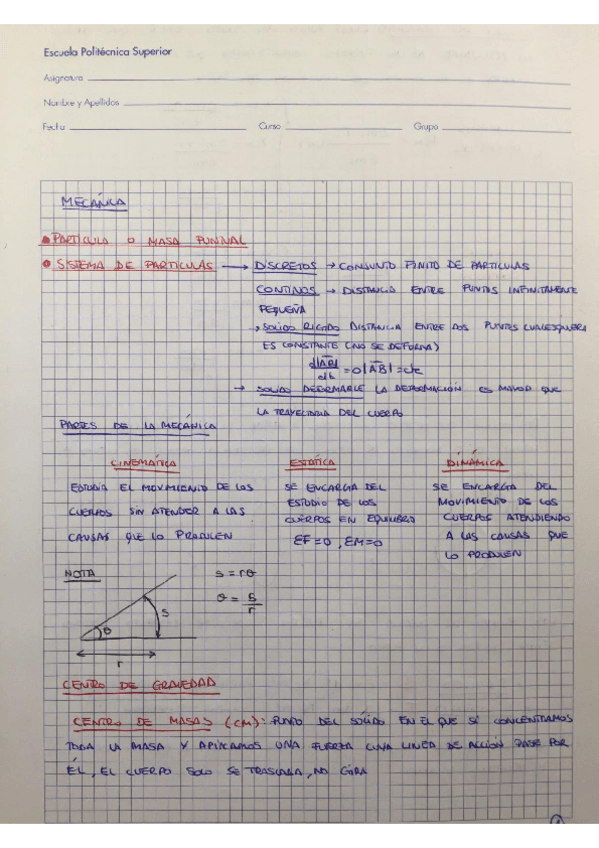 Escuela Politécnica Superior
Asignatura
Nombre y Apellidos
Fecha Curso Grupo
MECÁNICA
• PARTÍCULA O MASA PUNTUAL
• SISTEMA DE PARTICULAS → DISCRETOS → CONJUNTO FINITO DE PARTICULAS
CONTINOS → DISTANCIA ENTRE PUNTOS INFINITAMENTE
PEQUEÑA
→ SOLIDO RIGIDO DISTANCIA ENTRE DOS PUNTOS CUALESQUIERA
ES CONSTANTE (NO SE DEFORMA)
d|AB|/dt = 0 |AB| = cte
→ SOLIDO DEFORMABLE LA DEFORMACIÓN ES MAYOR QUE
LA TRAYECTORIA DEL CUERPO
PARTES DE LA MECÁNICA
CINEMÁTICA ESTÁTICA DINÁMICA
ESTUDIA EL MOVIMIENTO DE LOS SE ENCARGA DEL SE ENCARGA DEL
CUERPOS SIN ATENDER A LAS ESTUDIO DE LOS MOVIMIENTO DE LOS
CAUSAS QUE LO PRODUCEN CUERPOS EN EQUILIBRIO CUERPOS ATENDIENDO
ΣF=0, ΣM=0 A LAS CAUSAS QUE
LO PRODUCEN
NOTA s = rθ
θ = s/r
s
θ
r
CENTRO DE GRAVEDAD
CENTRO DE MASAS (CM): PUNTO DEL SÓLIDO EN EL QUE SI CONCENTRAMOS
TODA LA MASA Y APLICAMOS UNA FUERZA CUYA LINEA DE ACCIÓN PASE POR
ÉL, EL CUERPO SOLO SE TRASLADA, NO GIRA